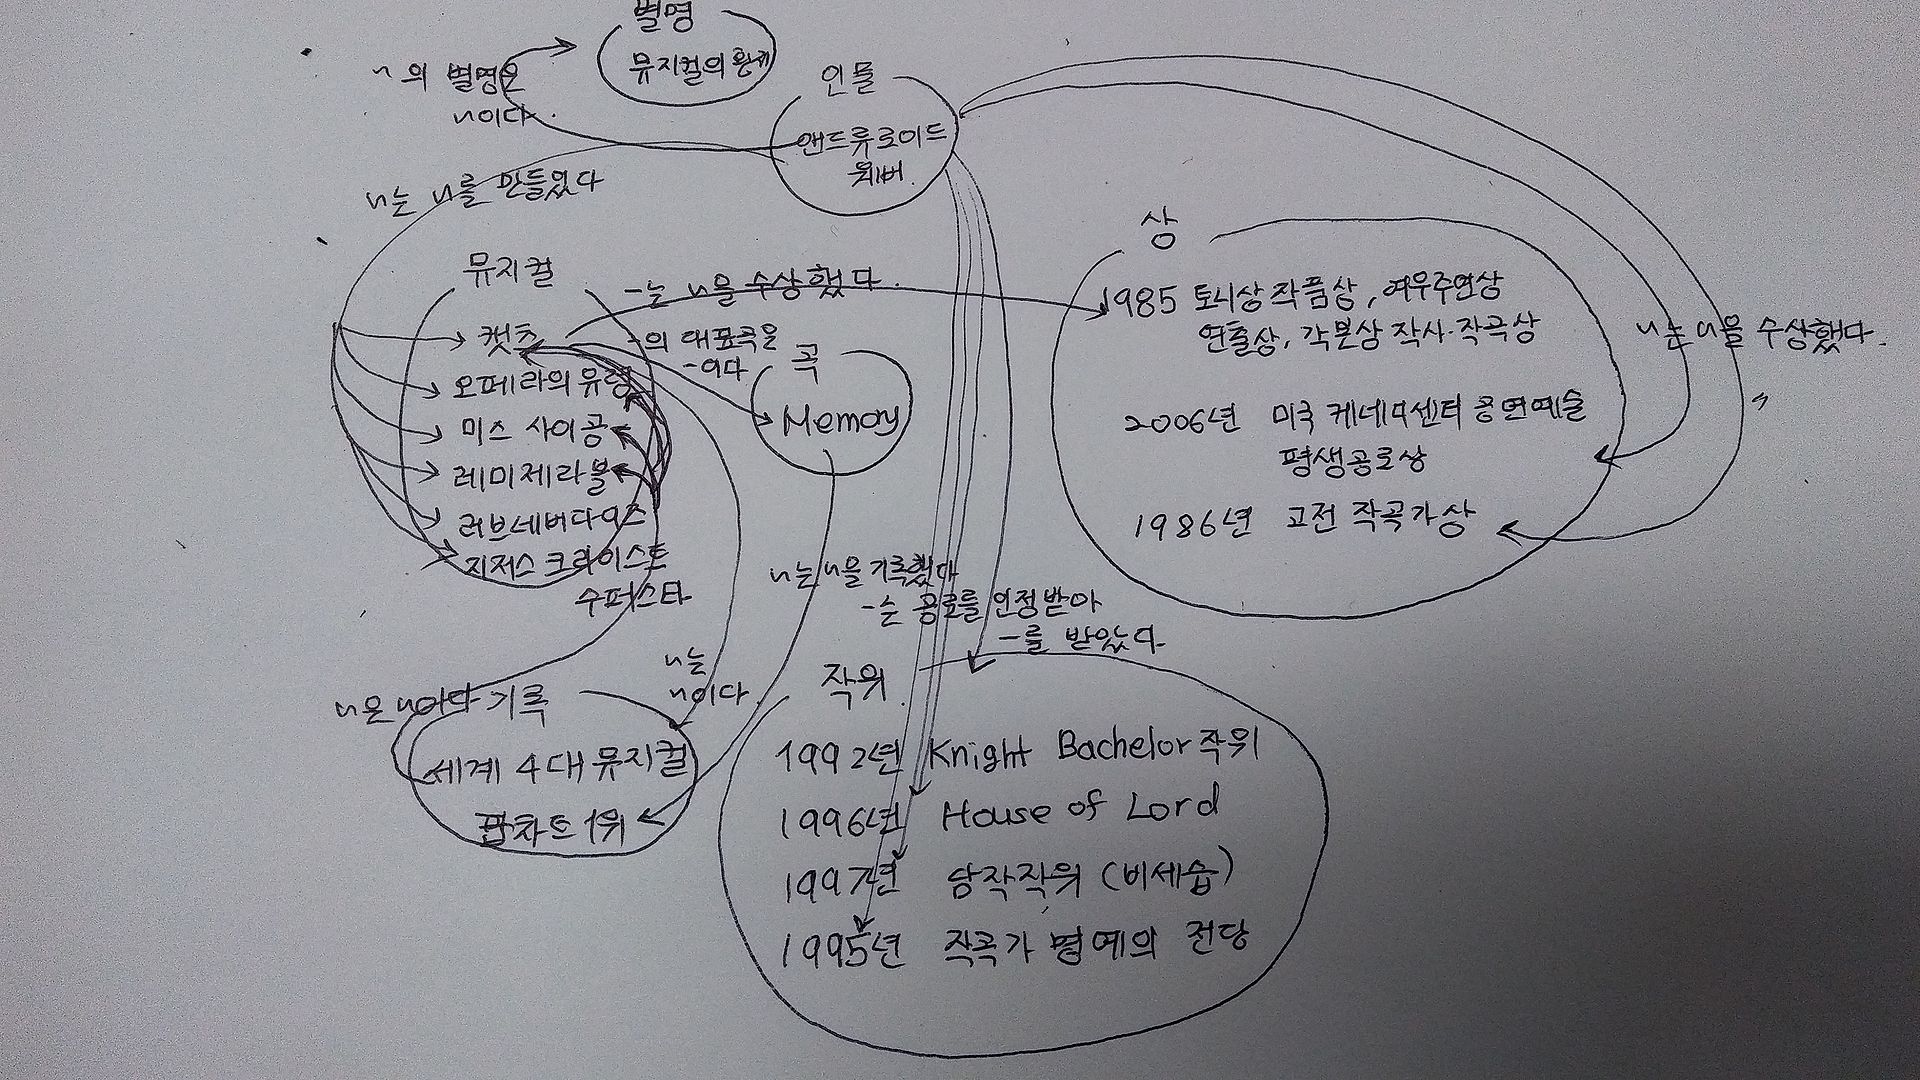 별명
뮤지컬의 황제
~의 별명은
~이다.
인물
앤드류로이드
웨버
~는 ~를 만들었다
뮤지컬
캣츠
오페라의 유령
미스 사이공
레미제라블
러브네버다이스
지저스 크라이스트
수퍼스타
-는 ~을 수상했다.
-의 대표곡은
-이다
곡
Memory
상
1985 토니상 작품상, 여우주연상
연출상, 각본상 작사·작곡상
2006년 미국 케네디센터 공연예술
평생공로상
1986년 고전 작곡가상
~는 ~을 수상했다.
~는 ~을 기록했다
-는 공로를 인정받아
-를 받았다.
~는
~이다.
~은 ~이다
기록
세계 4대 뮤지컬
팝차트 1위
작위
1992년 Knight Bachelor 작위
1996년 House of Lord
1997년 남작작위 (비세습)
1995년 작곡가 명예의 전당